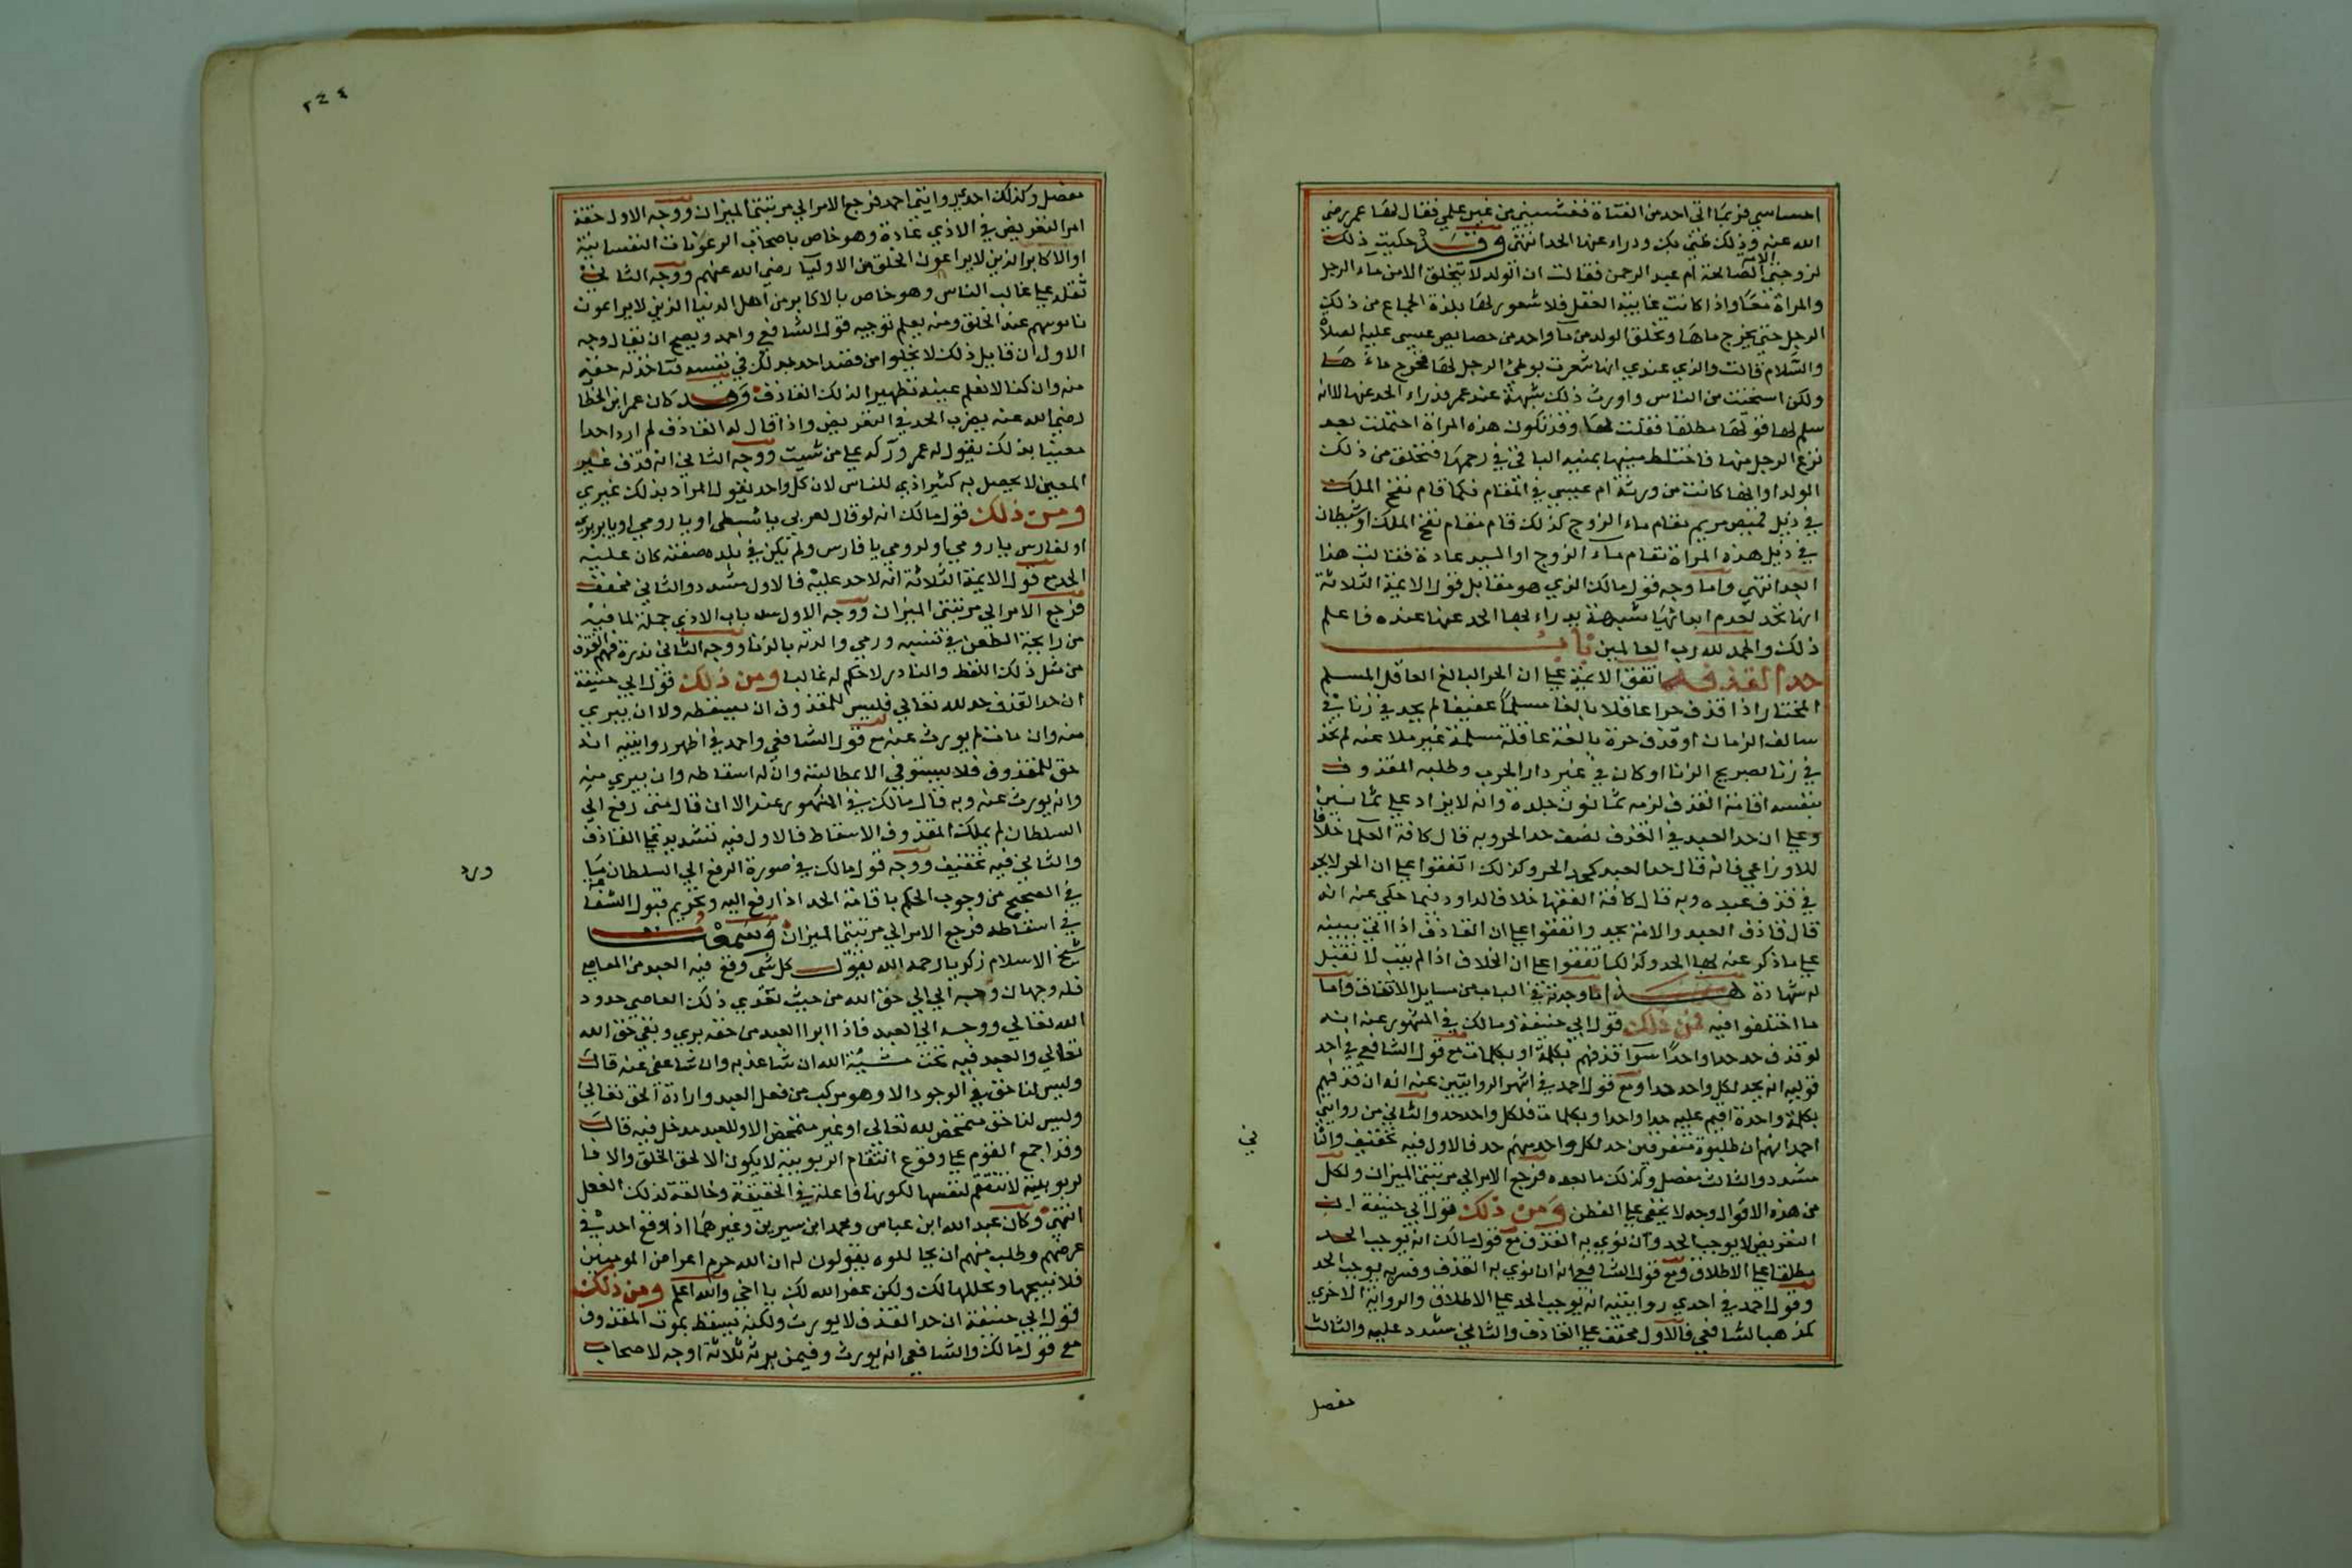 احساسي فربما اتى احد من الفتاة فغشيني من غير علمي فقال لها عمر رضي
الله عنه وذلك ظني بك ودراء عنها الحد انتهى وقد حكيت ذلك
لزوجتي الصالحة ام عبد الرحمن فقالت ان الولد لا يتخلق الا من ماء الرجل
والمراة معا واذا كانت غايبة العقل فلا شعور لها بلذة الجماع من ذلك
الرجل حتى يخرج ماها وتخلق الولد من ماء واحد من خصايص عيسى عليه الصلاة
والسلام قالت والذي عندي انها شعرت بوطئ الرجل لها فخرج ماء ها
ولكن استحت من الناس واورث ذلك شبهة عند عمر فدراء الحد عنها لا انه
سلم لها قولها مطلقا فقلت لها وقد تكون هذه المراة احتملت بعد
نزع الرجل منها فاختلط منيها بمنيه الباقي في رحمها فتخلق من ذلك
الولد او انها كانت من ورثة ام عيسى في المقام فكما قام نفخ الملك
في ذيل قميص مريم مقام ماء الزوج كذلك قام مقام نفخ الملك او شيطان
في ذيل هذه المراة مقام ماء الزوج او السيد عادة فقالت هذا
ابعد انتهى واما وجه قول مالك الذي هو مقابل قول الايمة الثلاثة
انها تحد لعدم ابدائها شبهة يدراء بها الحد عنها عنده فاعلم
ذلك والحمد لله رب العالمين باب
حد القذف اتفق الايمة على ان الحر البالغ العاقل المسلم
المختار اذا قذف حرا عاقلا بالغا مسلما عفيفا لم يحد في زنا في
سالف الزمان او قذف حرة بالغة عاقلة مسلمة غير ملاعنه لم تحد
في زنا بصريح الزنا وكان في غير دار الحرب وطلبه المقذوف
بنفسه اقامة القذف لزمه ثمانون جلدة وانه لا يزاد على ثمانين
وعلى ان حد العبد في القذف نصف حد الحر وبه قال كافة العلما خلافا
للاوزاعي فانه قال حد العبد كحد الحر وكذلك اتفقوا على ان الحر لا يحد
في قذف عبده وبه قال كافة الفقها خلافا لداود فيما حكي عنه انه
قال قاذف العبد والامة يحد واتفقوا على ان القاذف اذا اتى ببينه
على ما ذكر عنه لها الحد وكذلك اتفقوا على ان الخلاف اذا لم يتب لا تقبل
له شهادة هذا ما وجدته في الباب من مسايل الاتفاق واما
ما اختلفوا فيه فمن ذلك قول ابي حنيفة ومالك في المشهور عنه انه
لو قذف حد حدا واحدا سوا قذفهم بكلمة او بكلمات مع قول الشافعي في احد
قوليه انه يحد لكل واحد حدا ومع قول احمد في اشهر الروايتين عنه انه ان قذفهم
بكلمة واحدة اقيم عليه حدا واحدا وبكلمات فلكل واحد حد والثاني من روايتي
احمد انهم ان طلبوه متفرقين حد لكل واحد منهم حد فالاول فيه تخفيف والثا
ني
مشدد والثالث مفصل وكذلك ما بعده فرجع الامر الى مرتبتي الميزان ولكل
من هذه الاقوال وجه لا يخفى على الفطن ومن ذلك قول ابي حنيفة ان
التعريض لا يوجب الحد وان نوي به القذف مع قول مالك انه يوجب الحد
مطلقا على الاطلاق ومع قول الشافعي انه ان نوي به القذف وفسره يوجب الحد
وقول احمد في احدي روايتيه انه يوجب الحد على الاطلاق والرواية الاخرى
كمذهب الشافعي فالاول مخفف على القاذف والثاني مشدد عليه والثالث
مفصل
٢٤٤
مفصل وكذلك احدي روايتي احمد فرجع الامر الى مرتبتي الميزان ووجه الاول خفة
امر التعريض في الاذي عادة وهو خاص باصحاب الرعونات النفسانية
او الاكابر الذين لا يراعون الخلق من الاوليا رضي الله عنهم ووجه الثاني
ثقله على غالب الناس وهو خاص بالاكابر من اهل الدنيا الذين لا يراعون
ناموسهم عند الخلق ومنه يعلم توجيه قول الشافعي واحمد ويصح ان يقال وجه
الاول ان قايل ذلك لا يخلوا من قصد احد بذلك في نفسه فتاخذ له حقه
منه وان كنا لا نعلم عينه تطهيرا لذلك القاذف وقد كان عمر ابن الخطا
رضي الله عنه يضرب الحد في التعريض واذا قال له القاذف لم ارد احدا
معينا بذلك يقول له عمر وركه على من شيت ووجه الثاني انه قذف غير
المعين لا يحصل به كثير اذي للناس لان كل واحد يقول المراد بذلك غيري
ومن ذلك قول مالك انه لو قال لعربي يا نبطي او يا رومي او يا بربري
او لفارس يا رومي او لرومي يا فارس ولم تكن في بلده صفته كان عليه
الحد مع قول الايمة الثلاثة انه لا حد عليه فالاول مشدد والثاني مخفف
فرجع الامر الى مرتبتي الميزان ووجه الاول سد باب الاذي جملة لما فيه
من رايحة الطعن في نسبه ورمي والدته بالزنا ووجه الثاني ندرة فهم القذف
من مثل ذلك اللفظ والنادر لا حكم له غالبا ومن ذلك قول ابي حنيفة
ان حد القذف حد لله تعالي فليس للمقذوف ان يسقطه ولا ان يبري
منه وان مات لم يورث عنه مع قول الشافعي واحمد في اظهر روايتيه انه
حق للمقذوف فلا يستوفي الا بمطالبته وان له اسقاطه وان يبري منه
وانه يورث عنه وبه قال مالك في المشهور عنه الا ان قال متى رفع الي
السلطان لم يملك المقذوف الاسقاط فالاول فيه تشديد على القاذف
والثاني فيه تخفيف ووجه قول مالك في صورة الرفع الي السلطان ما
ورد
في الصحيح من وجوب الحكم باقامة الحد اذا رفع اليه وتحريم قبول الشفا
في اسقاطه فرجع الامر الى مرتبتي الميزان وسمعت
شيخ الاسلام زكريا رحمه الله يقول كل شي وقع فيه العبد من المعاصي
فله وجهان وجه الى الى حق الله من حيث تعدي ذلك العاصي حدود
الله تعالي ووجه الي العبد فاذا ابرا العبد من حقه بري وبقي حق الله
تعالي والعبد فيه تحت مشيئة الله ان شا عذبه وان شا عفى عنه قال
وليس لنا حق في الوجود الا وهو مركب من فعل العبد وارادة الحق تعالي
وليس لنا حق متمحض لله تعالى او غير متمحض الا وللعبد مدخل فيه قال
وقد اجمع القوم على وقوع انتقام الربوبية لا يكون الا لحق الخلق والا فا
لربوبية لا تنتقم لنفسها لكونها فاعلة في الحقيقة وخالقة لذلك الفعل
انتهى وكان عبد الله ابن عباس ومحمد ابن سيرين وغيرهما اذا وقع احد في
عرضهم وطلب منهم ان يحاللوه يقولون له ان الله حرم اعراض المومنين
فلا نبيحها ونحللها لك ولكن غفر الله لك يا اخي والله اعلم ومن ذلك
قول ابي حنيفة ان حد القذف لا يورث ولكنه يسقط بموت المقذوف
مع قول مالك والشافعي انه يورث وفيمن يرثه ثلاثة اوجه لاصحاب